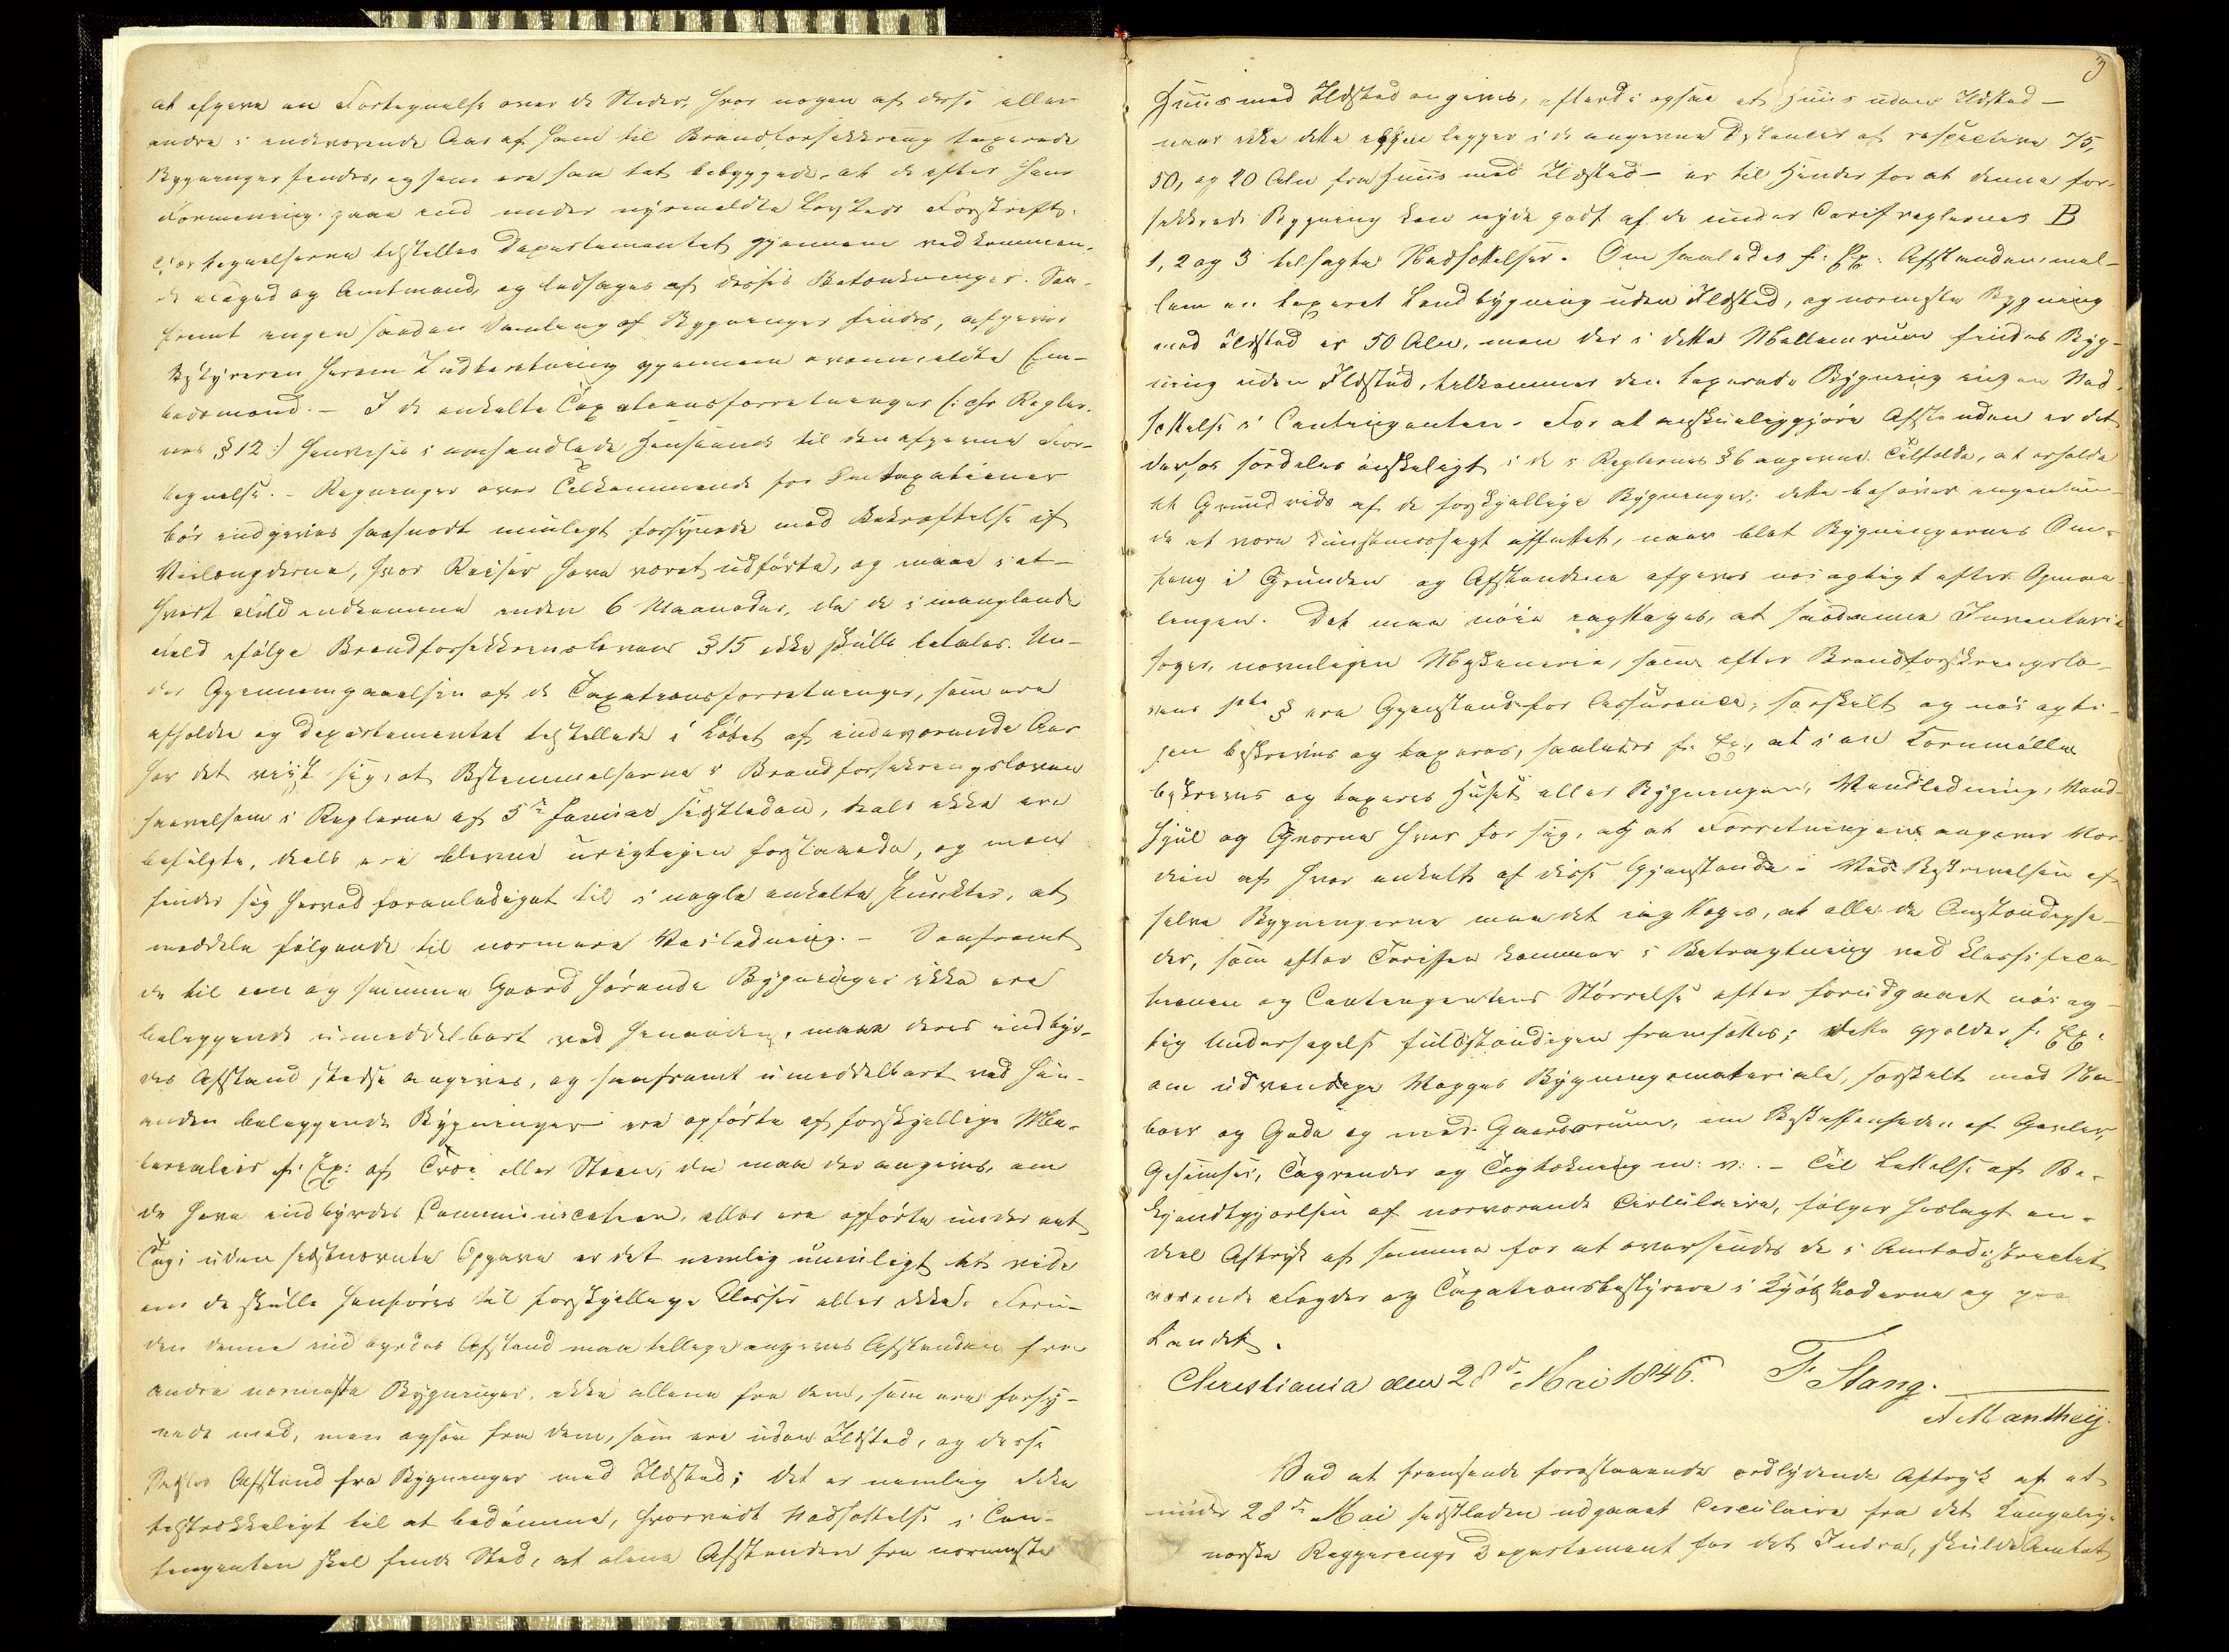 at afgive en Fortegnelse over de Steder, hvor nogen af disse eller
andre i indeværende Aar af ham til Brandforsikkring taxerede
Bygninger findes, og som ere saa tæt bebyggede, at de efter hans
Formening gaae ind under nysmeldte Lovsteds Forskrift.
Fortegnelserne tilstilles Departementet gjennem vedkommen-
de Foged og Amtmand, og ledsages af disses Betænkninger. Saa-
fremt ingen saadan Samling af Bygninger findes, afgiver
Bestyreren herom Indberetning gjennem ovenmeldte Em-
bedsmænd. - I de enkelte Taxationsforretninger (: cfr Regler-
nes § 12 :) henvises i omhandlede Henseende til den afgivne For-
tegnelse. - Regninger over Tilkommende for Omtaxationer
bør indgives saasnart muligt forsynede med Bekræftelse af
Veilængderne, hvor Reiser have været udførte, og maae i et-
hvert Fald indkomme inden 6 Maaneder, da de i manglende
Fald ifølge Brandforsikkrinslovens § 15 ikke skulle betales. Un-
der Gjennemgaaelsen af de Taxationsforretninger, som ere
afholdte og Departementet tilstillede i Løbet af indeværende Aar
har det viist sig, at Bestemmelserne i Brandforsikringsloven
saavelsom i Reglerne af 5te Januar sidstleden, deels ikke ere
befulgte, deels ere blevne urigtigen forstaaede, og man
finder sig herved foranlediget til i nogle enkelte Punkter, at
meddele følgende til nærmere Veiledning. - Saafremt
de til een og samme Gaard hørende Bygninger ikke ere
beliggende umiddelbart ved hinanden, maae deres indbyr-
des Afstand stedse angives, og saafremt umiddelbart ved hin-
anden beliggende Bygninger ere opførte af forskjellige Ma-
terialier f: Ex: af Træ eller Steen, da maa der angives, om
de have indbyrdes Communication, eller ere opførte under eet
Tag; uden sidstnævnte Opgave er det nemlig umuligt at vide
om de skulle henføres til forskjellige Classer eller ikke. Foru-
den denne indbyrdes Afstand maa tillige angives Afstanden fra
andre nærmeste Bygninger, ikke allene fra dem, som ere forsy-
nede med, men ogsaa fra dem, som ere uden Ildsted, og disse
Sidstes Afstand fra Bygninger med Ildsted; det er nemlig ikke
tilstrækkeligt til at bedømme, hvorvidt Nedsættelse i Con-
tingenten skal finde Sted, at alene Afstanden fra nærmeste
3
Huus med Ildsted angives, efterdi ogsaa et Huus uden Ildsted -
naar ikke dette igjen ligger i de angivne Distancer af respective 75,
50, og 20 Alen fra Huus med Ildsted - er til Hinder for at denne for-
sikkrede Bygning kan nyde godt af de under Tarifreglernes B
1, 2 og 3 tilsagte Nedsættelser. Om saaledes f: Ex: Afstanden mel-
lem en taxeret Landbygning uden Ildsted, og nærmeste Bygning
med Ildsted er 50 Alen, men der i dette Mellemrum findes Byg-
ning uden Ildsted, tilkommer den taxerede Bygning ingen Ned-
sættelse i Contingenten. For at anskueliggjøre Afstanden er det
derfor særdeles ønskeligt i de i Reglernes § 6 angivne Tilfælde, at erholde
et Grundrids af de forskjellige Bygninger; dette behøver ingenlun-
de at være kunstmæssigt affattet, naar blot Bygningernes Om-
fang i Grunden og Afstandene afgives nøiagtigt efter Opmaa-
lingen. Det maa nøie iagttages, at saadanne Inventarie
sager, navnligen Maskinerie, som efter Brandforsikringslo-
vens § ere Gjenstand for Assurance, særskilt og nøiagti-
gen beskrives og taxeres, saaledes f: Ex:, at i en Kornmølle
beskrives og taxeres Huset eller Bygningen, Vandledning, Vand-
hjul og Qværne hver for sig, og at Forretningen angiver Vær-
dien af hver enkelt af disse Gjenstande. - Ved Beskrivelsen af
selve Bygningerne maa det iagttages, at alle de Omstændighe-
der, som efter Tariffen kommer i Betragtning ved Classifica-
tionen og Contingentens Størrelse efter forudgaaet nøiag-
tig Undersøgelse fuldstændigen fremsættes; dette gjelder f: Ex:
om udvendige Vægges Bygningsmateriale, særskilt mod Na-
boer og Gade og mod Gaardsrum, om Beskaffenheden af Gavler,
Gesimser, Tagrender og Tagtækning m: v:. - Til Lettelse af Be-
kjendtgjørelsen af nærværende Circulaire, følger hoslagt en-
deel Aftryk af samme for at oversendes de i Amtsdistrictet
værende Fogder og Taxationsbestyrere i Kjøbstæderne og paa
Landet.
Christiania den 28de Mai 1846. F Stang.
A Manthey.
Ved at fremsende foranstaaende ordlydende Aftryk af et
under 28de Mai sidstleden udgaaet Circulaire fra det Kongelige
norske Regjerings Departement for det Indre, skulde Amtet